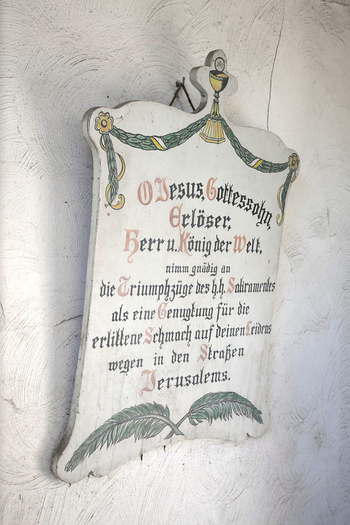 O Jesus, Gottessohn,
Erlöser,
Herr u. König der Welt,
nimm gnädig an
die Triumphzüge des h.h. Sakramentes
als eine Genugtung für die
erlittene Schmach auf deinen Leidens
wegen in den Straßen
Jerusalems.